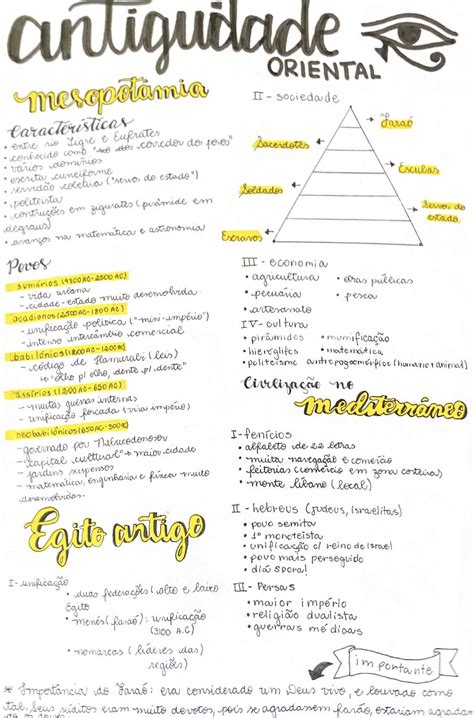 antiguidade
ORIENTAL
mesopotâmia
Características
• entre rio Tigre e Eufrates
• conhecido como "corredor do povos"
• vários domínios
• escrita cuneiforme
• servidão coletiva ("servo do estado")
• politeísta
• contruções em zigurates (pirâmide em
degraus)
• avanços na matemática e astronomia
Povos
sumérios (4500AC-2500 AC)
- vida urbana
- cidade-estado muito desenvolvida
acadianos (2500AC-1800 AC)
- unificação política ("mini-império")
- intenso intercâmbio comercial
babilônios (1800AC-1200AC)
- código de Hamurabi (leis)
→ "olho p/ olho, dente p/ dente"
assírios (1200AC-650 AC)
- muitas guerras internas
- unificação forçada (vira império)
neobabilônios (650AC-500AC)
- governado por Nabucodonosor
- "capital cultural" → maior cidade
- jardins suspensos
- matemática, engenharia e física muito
desenvolvidas.
Egito antigo
I- unificação
• duas federações (alto e baixo
Egito
• menés (faraó): unificação
(3100 A.C)
• nomarcas (líderes das
regiões)
II - sociedade
Faraó
Sacerdotes
Escribas
Soldados
Servos do
estado
Escravos
III - economia
• agricultura • obras públicas
• pecuária • pesca
• artesanato
IV- cultura
• pirâmides • mumificação
• hieróglifos • matemática
• politeísmo antropogomórfico (humano+animal)
Civilização no
mediterrâneo
I- fenícios
• alfabeto de 22 letras
• muita navegação e comércio
• feitorias (comércio em zona costeira)
• monte líbano (local)
II - hebreus (judeus, israelitas)
• povo semita
• 1º monoteísta
• unificação c/ reino de Israel
• povo mais perseguido
• diáspora!
III- Persas
• maior império
• religião dualista
• guerras médicas
importante
* Importância do Faraó: era considerado um Deus vivo, e louvado como
tal. Seus súditos eram muito devotos, pois se agradassem faraó, estariam agradan